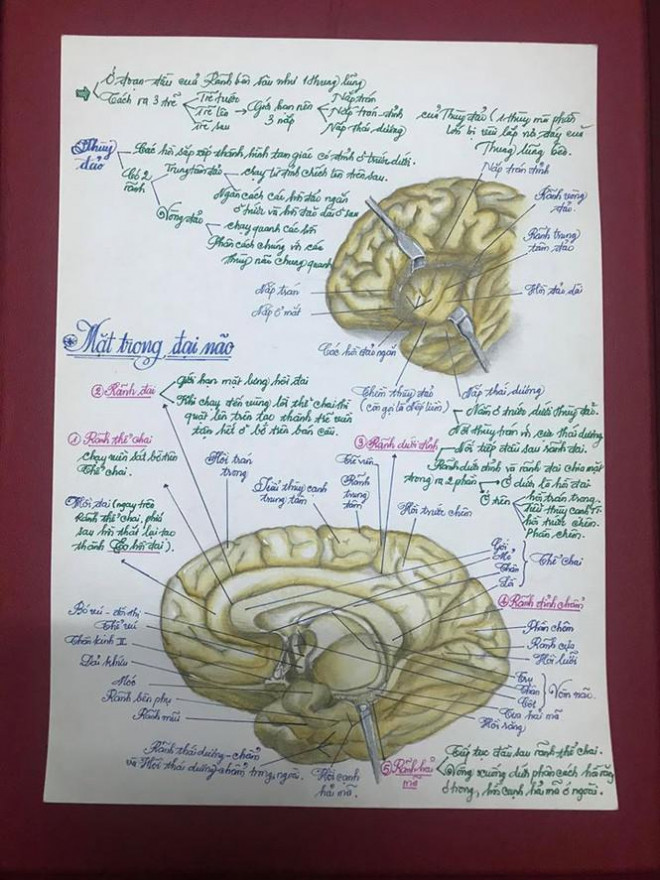 Ở đoạn đầu của Rãnh bên sâu như 1 thung lũng
Tách ra 3 trẽ
Trẽ trước
Trẽ lên
Trẽ sau
Giới hạn nên
3 nắp
Nắp trán
Nắp trán-đỉnh
Nắp thái dương
của Thùy đảo (1 thùy mà phần
lớn bị vùi lấp ở đáy của
Thung lũng bên.
Thùy
đảo
Các hồi sắp xếp thành hình tam giác có đỉnh ở trước dưới.
Có 2
rãnh
Trung tâm đảo
chạy từ đỉnh chếch lên trên sau.
Ngăn cách các hồi đảo ngắn
ở trước và hồi đảo dài ở sau
Vòng đảo
chạy quanh các hồi
Phân cách chúng với các
thùy não chung quanh
Nắp trán đỉnh
Rãnh vòng
đảo.
Rãnh trung
tâm đảo
Hồi đảo dài
Nắp trán
Nắp ổ mắt
Các hồi đảo ngắn
Thềm thùy đảo
(còn gọi là nếp liên)
Nắp thái dương
Nằm ở trước dưới thùy đảo.
Nối thùy trán với cực thái dương
Mặt trong đại não
② Rãnh đai
Giới hạn mặt lưng hồi đai
Khi chạy đến vùng lồi thể chai thì
quặt lên trên tạo thành trẽ viền
tận hết ở bờ trên bán cầu.
① Rãnh thể chai
chạy viền sát bờ trên
Thể chai.
Hồi trán
trong
Tiểu thùy cạnh
trung tâm
③ Rãnh dưới đỉnh
Trẽ viền
Rãnh
trung
tâm
Nối tiếp đầu sau rãnh đai.
Rãnh dưới đỉnh và rãnh đai chia mặt
trong ra 2 phần
Ở dưới là hồi đai
Ở trên
hồi trán trong.
tiểu thùy cạnh TT.
hồi trước chêm.
Phần chêm.
Hồi trước chêm
Hồi đai (ngay trên
Rãnh thể chai, phía
sau hồi thắt lại tạo
thành Eo hồi đai).
Gối
Mỏ
Thân
Lồi
Thể chai
④ Rãnh đỉnh chẩm
Phần chêm
Rãnh cựa
Hồi lưỡi
Trụ
Thân
Cột
Vòm não.
Tua hải mã
Hồi răng
Bó vú - đồi thị
Thể vú
Thần kinh II
Dải khứu
Móc
Rãnh bên phụ
Rãnh mũi
Rãnh thái dương-chẩm
và Hồi thái dương-chẩm trong, ngoài.
Hồi cạnh
hải mã.
⑤ Rãnh hải
mã
Tiếp tục đầu sau rãnh thể chai.
Vòng xuống dưới phân cách hồi răng
ở trong, hồi cạnh hải mã ở ngoài.